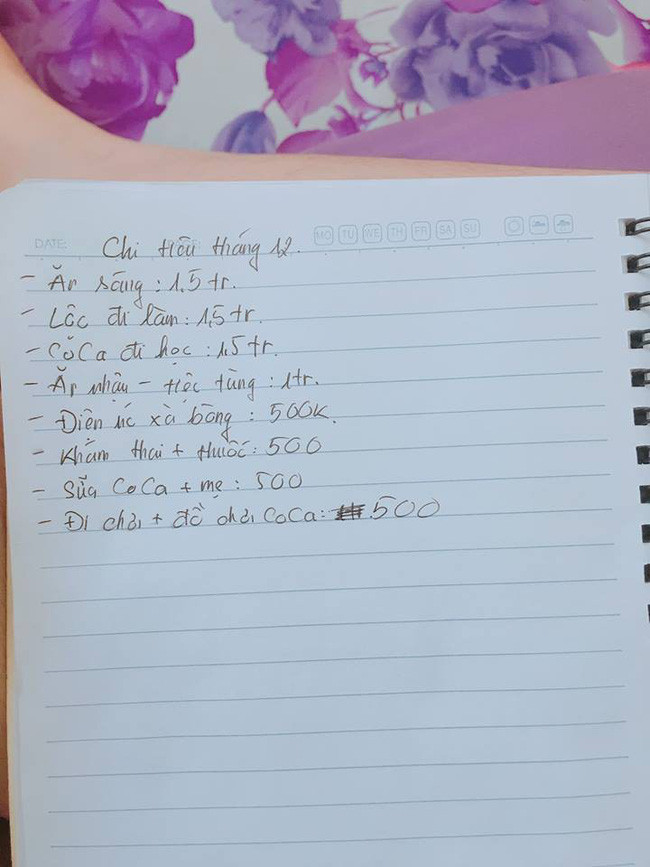 DATE:
MO TU WE TH FR SA SU
Chi tiêu tháng 12.
- Ăn sáng : 1,5 tr.
- Lộc đi làm : 1,5 tr.
- CoCa đi học : 1,5 tr.
- Ăn nhậu - tiệc tùng : 1tr.
- Điện nc xà bông : 500K.
- Khám thai + thuốc : 500
- Sữa CoCa + mẹ : 500
- Đi chơi + đồ chơi CoCa: 500